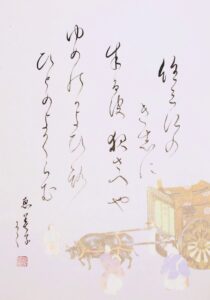 住之江の
きしに
よる波夜さへや
ゆめのかよひ路
ひとめよくらむ